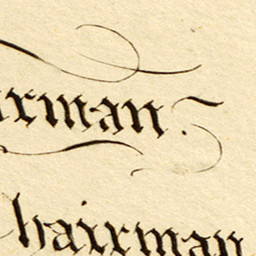 irman.
hairman